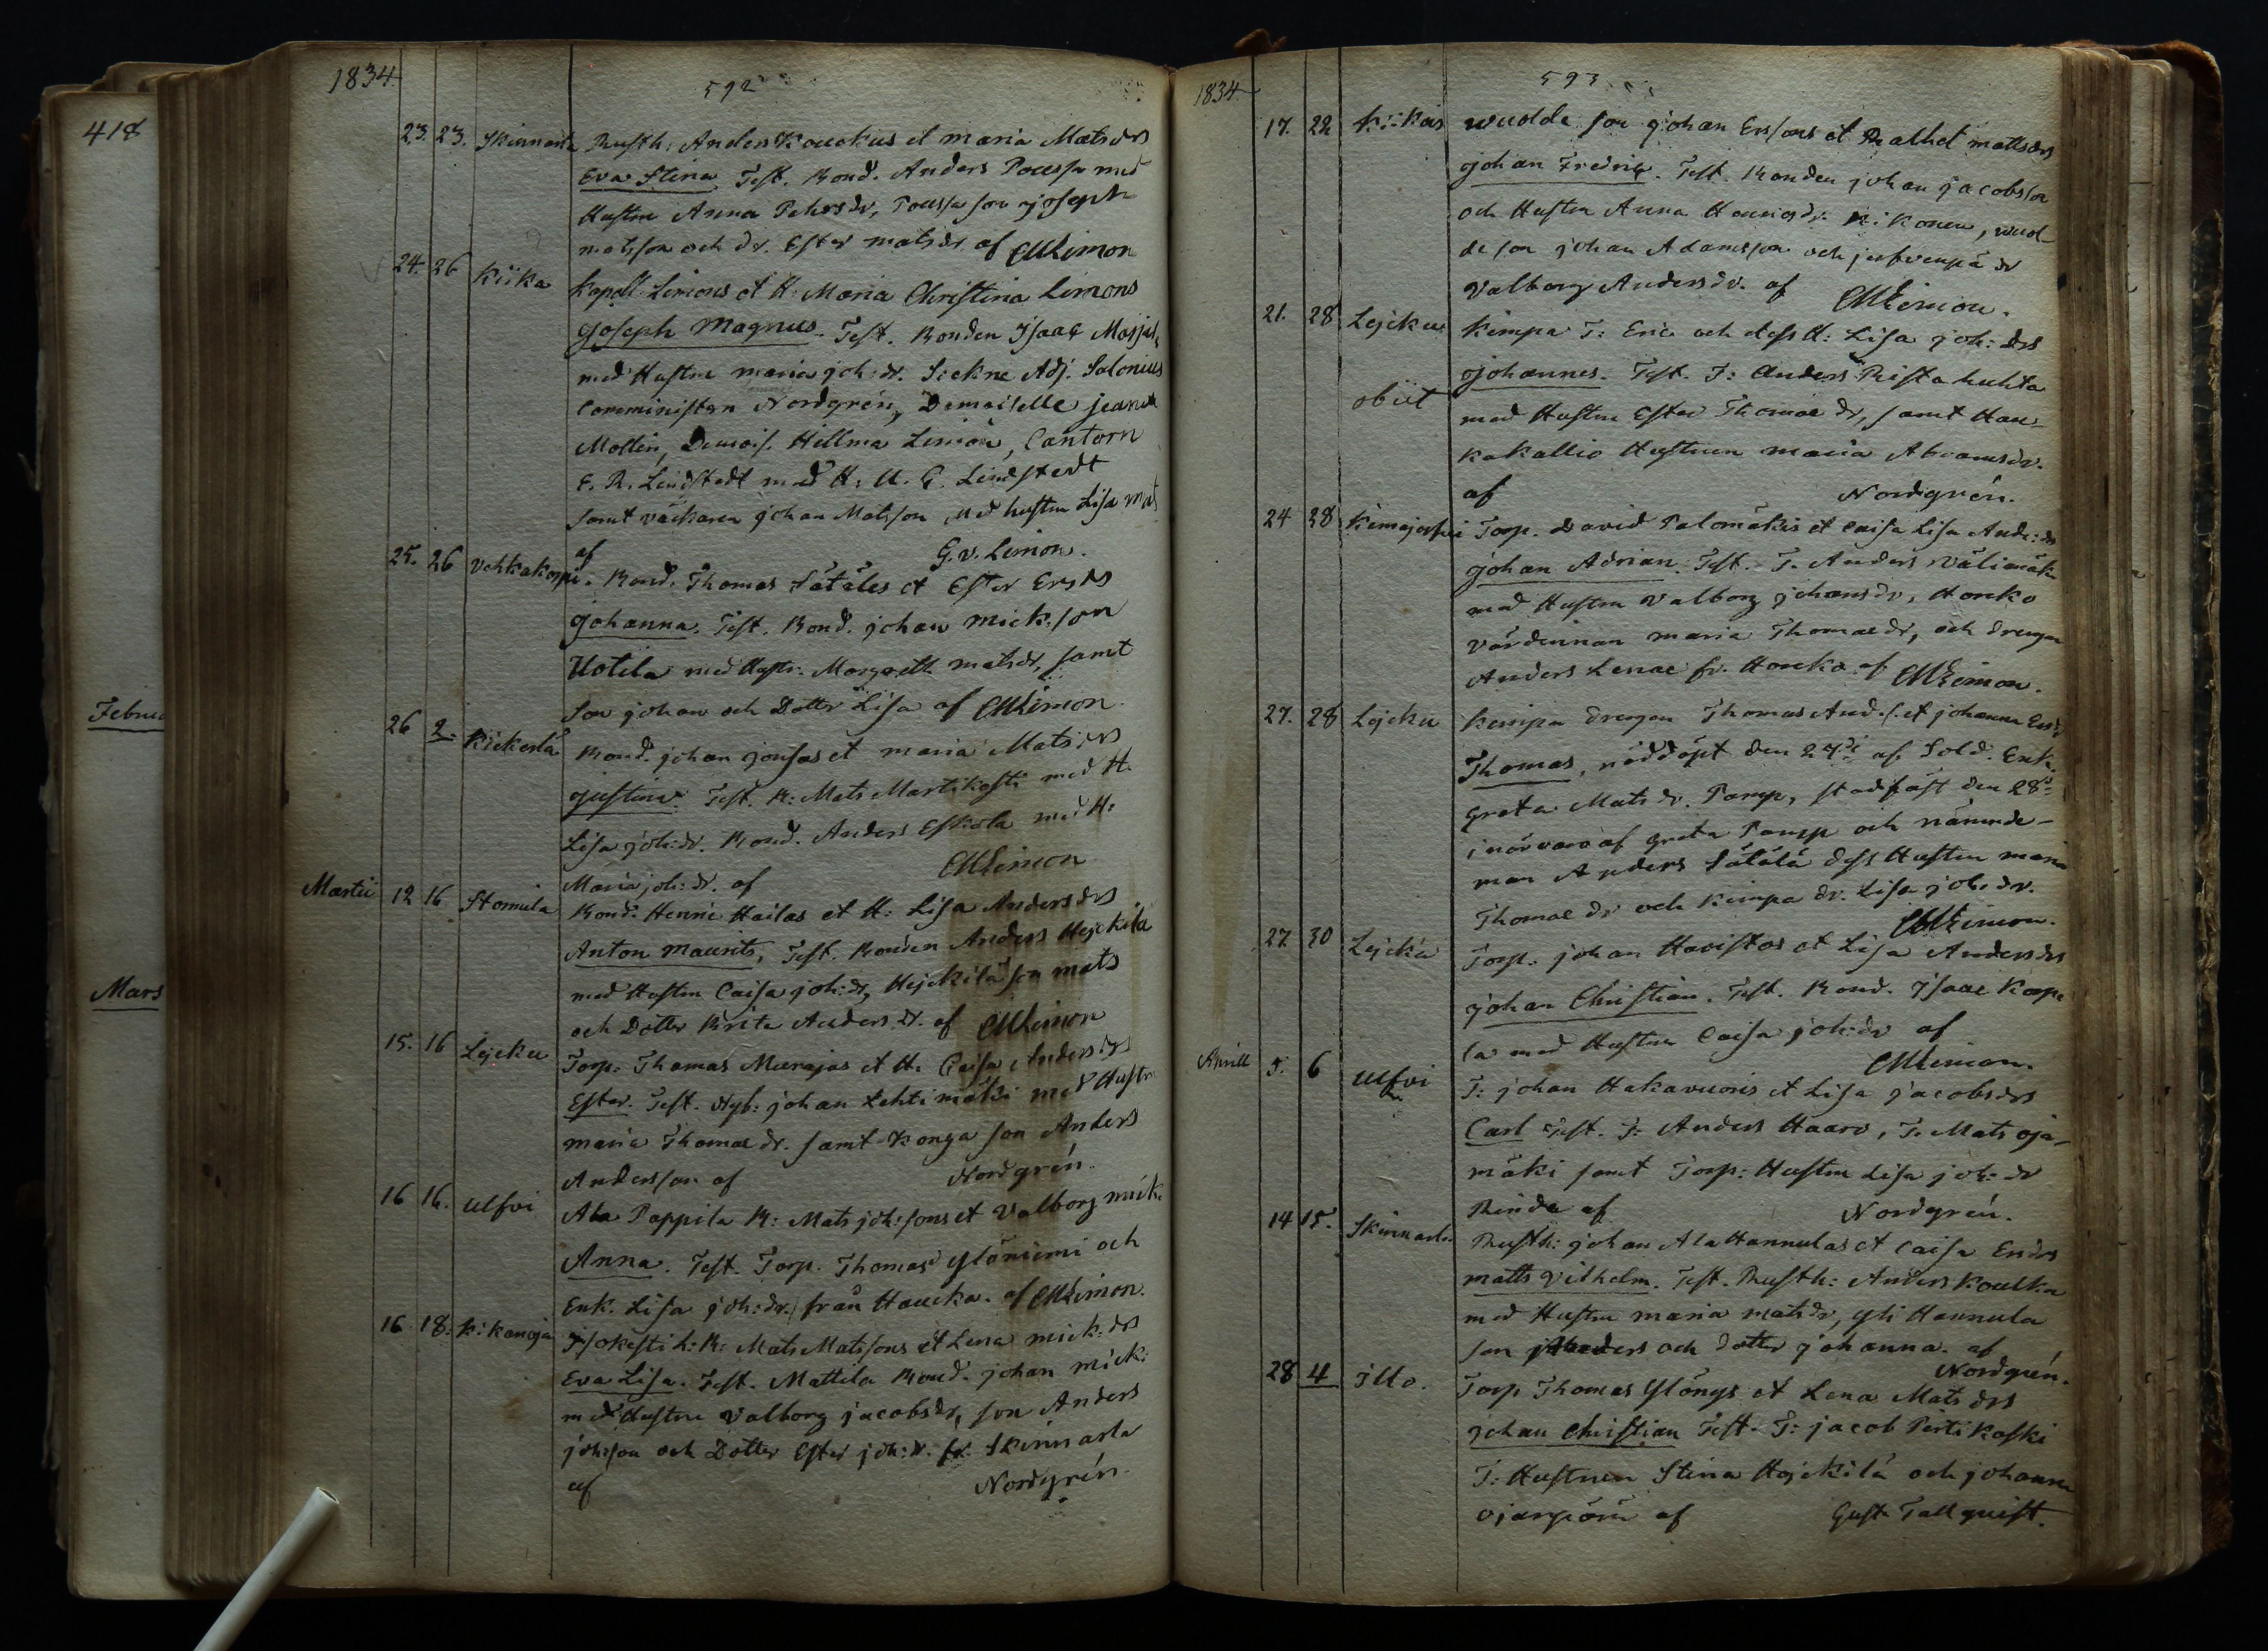 418
Februa
Mars
1834.
592
23. 23. Skinnarla Rusth: Anders Kouckus et Maria Mats drs
Eva Stina. Test. Bond. Anders Poussa med
Hustru Anna Pehrsdr, Poussa son Joseph
Matsson och dr. Ester Matsdr af CMLimon
24. 26 Kiika Kapell: Limons et H: Maria Christina Limons
Joseph Magnus. Test. Bonden Isaac
med Hustru Maria joh:dr. Adj. Salonius
Comministern Nordgrén, Demoiselle
Mollin, Demois. Hillma Limon, Cantorn
E. R. Lindstedt med H: U. G. Lindstedt
samt väckaren Johan Matsson med hustru Lisa Mat
af G.v. Limon.
25. 26 Vehkakorpi. Bond. Thomas Sätäles et Ester Ersdrs
Johanna. Test. Bond. Johan Mick:son
Uotila med Hustr. Margreth Matsdr, samt
Son Johan och Dotter Lisa af CMLimon.
26 2. Kiickerlä Bond. Johan Jonsas et Maria Mats:drs
Justina. Test. B: Mats Martikasti med H.
Lisa joh:dr. Bond. Anders Eskola med H:
Maria joh:dr. af CMLimon
Martii 12 16 Stormila Bond. Henric Hailas et H: Lisa Anders drs
Anton Maurits, Test. Bonden Anders Hejckilä
med Hustru Caisa joh:dr, Hejckilä son Mats
och Dotter Brita Anders dr. af CMLimon
15. 16 Lejcku Torp: Thomas Murajas et H. Caisa Anders drs
Ester. Test. Nyb: Johan Lehtimäki med Hustru
Maria Thomae dr. samt Konga son Anders
Andersson af Nordgrén.
16 16. Ulfvi Ala Pappila B: Mats joh:sons et Valborg Mick
Anna. Test. Torp. Thomas Ylöniemi och
Enk. Lisa joh:dr. från Haucka. af CMLimon.
16 18. K:kanoja B: Mats Matssons et Lena Mick:drs
Eva Lisa. Test. Mattila Bond. Johan Mick:
med Hustru Valborg Jacobsdr, son Anders
joh:son och Dotter Ester joh:dr. fr. Skinnarla
af Nordgrén.
1834.
593
17. 22 Kiikois Wuolde son Johan Erssons et Mattsdrs
Johan Fredric. Test. Bonden Johan Jacobsson
och Hustru Anna Henricsdr. , Wuol-
de son Johan Adamsson och dr
Valborg Andersdr. af CMLimon.
21. 28 Lejcku Kimpa T: Eric och dess H: Lisa joh: drs
Johannes. Test. T: Anders Ristahuhta
obiit
med Hustru Ester Thomae dr, samt Hau-
kakallio Hustrun Maria Abramsdr.
af Nordgrén.
24 28 Kimajerfvi Torp. David Palomäkis et Caisa Lisa Ande:drs
Johan Adrian. Test. T. Anders Välimäki
med Hustru Valborg Johansdr, Honko
värdinnan Maria Thomaedr, och drengen
Anders fr. Honko af CMLimon.
27. 28 Lejcku Kimpa drengen Thomas And.s. et Johanna Ersdr
Thomas, nöddöpt den 27de af Sold. Enk.
Greta Matsdr. Pamp, stadfäst den 28de
i närvaro af Greta Pamp och nämnde-
man Anders Sätälä dess Hustru Maria
Thomae dr och Kimpa dr. Lisa joh. dr.
CMLimon.
27. 30 Lejcku Torp. Johan Havistos et Lisa Andersdrs
Johan Christian. Test. Bond. Isaac Korpe
la med Hustru Caisa joh:dr af
CMLimon.
Aprill 5. 6 Ulfvi T: Johan Hakavuoris et Lisa Jacobsdrs
Carl Test. T: Anders Haaro, T. Mats Oja-
mäki samt Torp: Hustru Lisa joh: dr
Rinda af Nordgrén.
14 15. Skinnarla Rusth: Johan Ala Hannulas et Caisa
Matts Vilhelm. Test. Rusth: Anders Koulku
med Hustru Maria Matsdr, Yli Hannula
son Anders och dotter Johanna. af
Nordgrén.
28 4 Illo. Torp Thomas Ylönys et Lena Mats drs
Johan Christian Test. T: Jacob Pertikoski
T: Hustrun Stina Hejckilä och Johanna
Ojanperä af Gust. Tallquist.